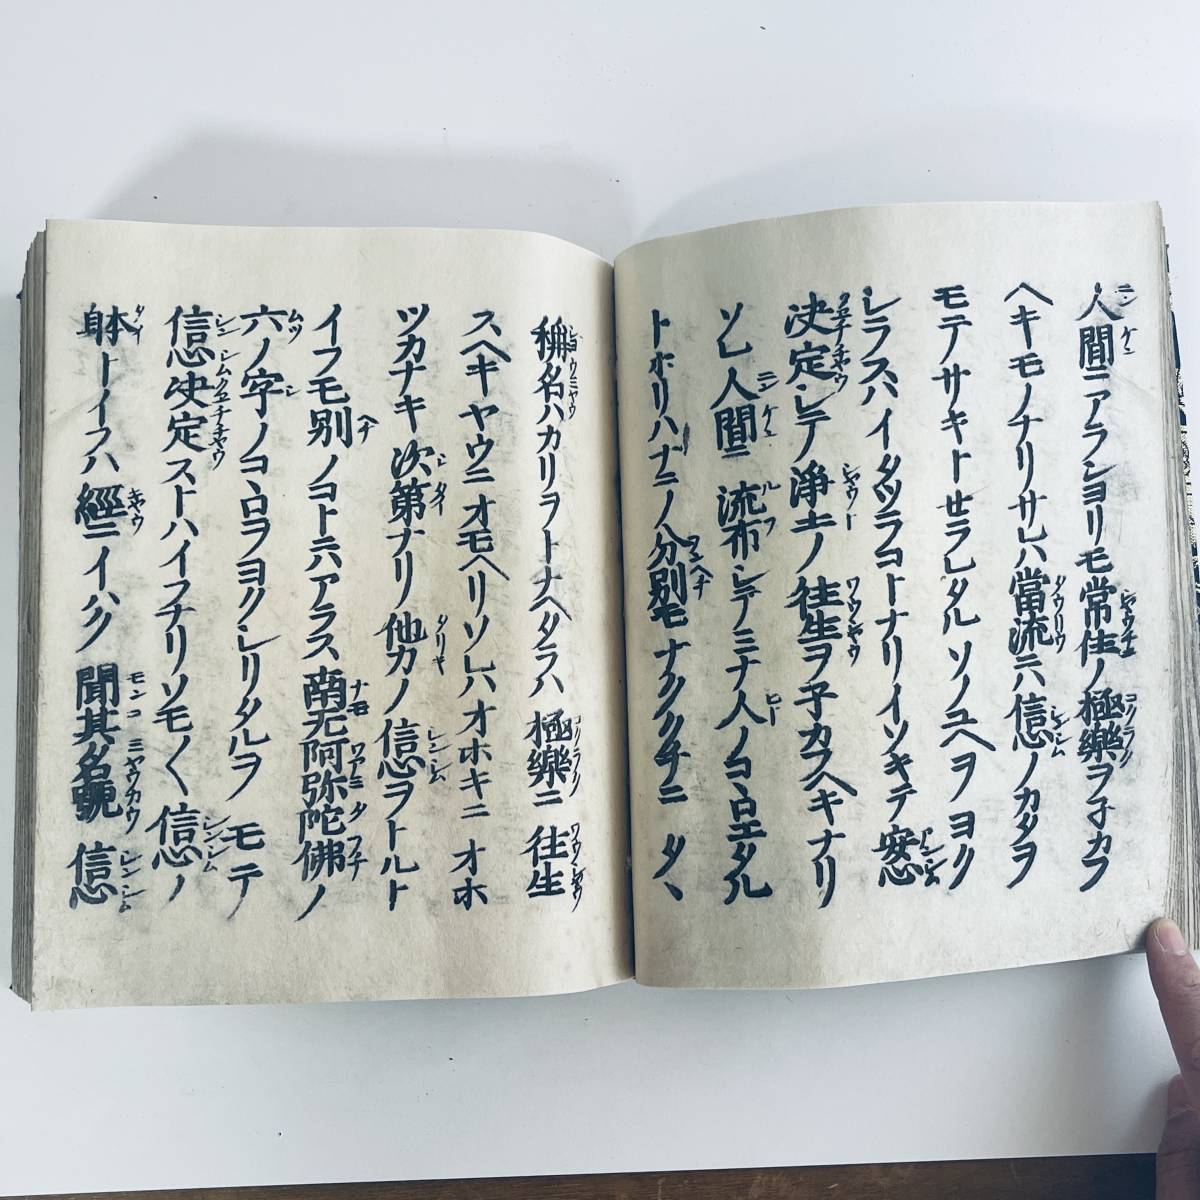 人間ニアランヨリモ常住ノ極樂ヲ子カフ
ヘキモノナリサレハ當流ニハ信心ノカタヲ
モテサキトせラレタルソノユヘヲヨク
シラスハイタツラコトナリイソキテ安心
决定シテ淨土ノ往生ヲ子カフヘキナリ
ソレ人間ニ流布シテミナ人ノコヽロエタル
トホリハナニノ分別モナククチニタヽ
稱名ハカリヲトナヘタラハ極樂ニ往生
スヘキヤウニオモヘリソレハオホキニオホ
ツカナキ次第ナリ他力ノ信心ヲトルト
イフモ別ノコトニハアラス南无阿弥陀佛ノ
六ノ字ノコヽロヲヨクシリタルヲモテ
信心决定ストハイフナリソモ〱信心ノ
躰トイフハ經ニイハク聞其名號信心